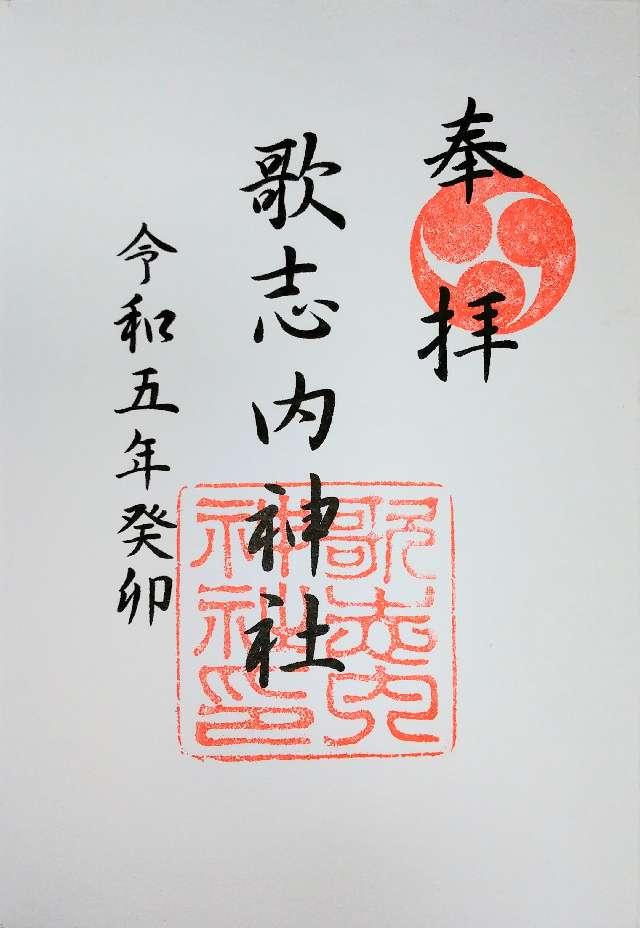 奉拝
歌志内神社
令和五年癸卯
歌志内
神社印